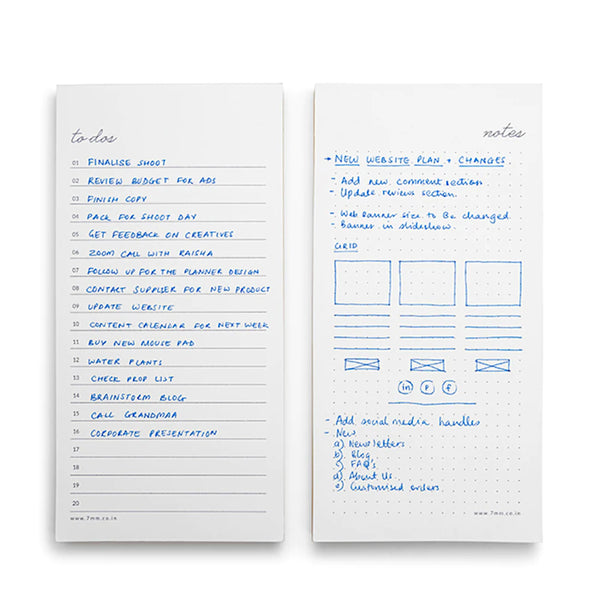 to dos
01 FINALISE SHOOT
02 REVIEW BUDGET FOR ADS
03 FINISH COPY
04 PACK FOR SHOOT DAY
05 GET FEEDBACK ON CREATIVES
06 ZOOM CALL WITH RAISHA
07 FOLLOW UP FOR THE PLANNER DESIGN
08 CONTACT SUPPLIER FOR NEW PRODUCT
09 UPDATE WEBSITE
10 CONTENT CALENDAR FOR NEXT WEEK
11 BUY NEW MOUSE PAD
12 WATER PLANTS
13 CHECK PROP LIST
14 BRAINSTORM BLOG
15 CALL GRANDMAA
16 CORPORATE PRESENTATION
17
18
19
20
www.7mm.co.in
notes
→ NEW WEBSITE PLAN + CHANGES
- Add new comment section
- Update reviews section.
- Web banner size to be changed
- Banner in slideshow.
GRID
in P f
- Add social media handles
- New
a). Newsletters
b). Blog
c). FAQ's
d). About Us.
e). Customised orders.
www.7mm.co.in